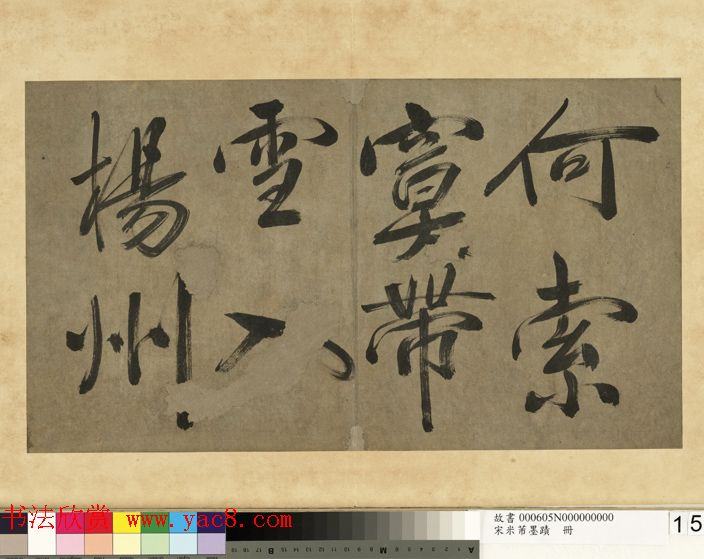 何索
寞帶
雪入
楊州
书法欣赏 www.yac8.com
故書 000605N000000000
宋米芾墨蹟 冊
15